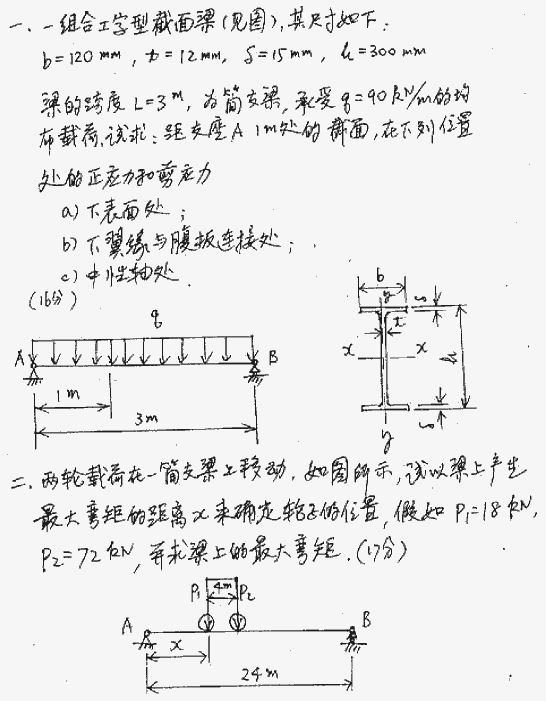 一. 一组合工字型截面梁(见图), 其尺寸如下:
b=120mm, t=12mm, δ=15mm, h=300mm
梁的跨度 L=3m, 为简支梁, 承受 q=90kN/m 的均
布载荷, 试求: 距支座A 1m处的截面, 在下列位置
处的正应力和剪应力
a) 下表面处;
b) 下翼缘与腹板连接处;
c) 中性轴处.
(16分)
q
A
B
1m
3m
b
y
δ
t
x
x
h
δ
y
二. 两轮载荷在一简支梁上移动, 如图所示, 试以梁上产生
最大弯矩的距离x来确定轮子的位置, 假如 P₁=18kN,
P₂=72kN, 并求梁上的最大弯矩. (17分)
P₁ 4m P₂
A
B
x
24m